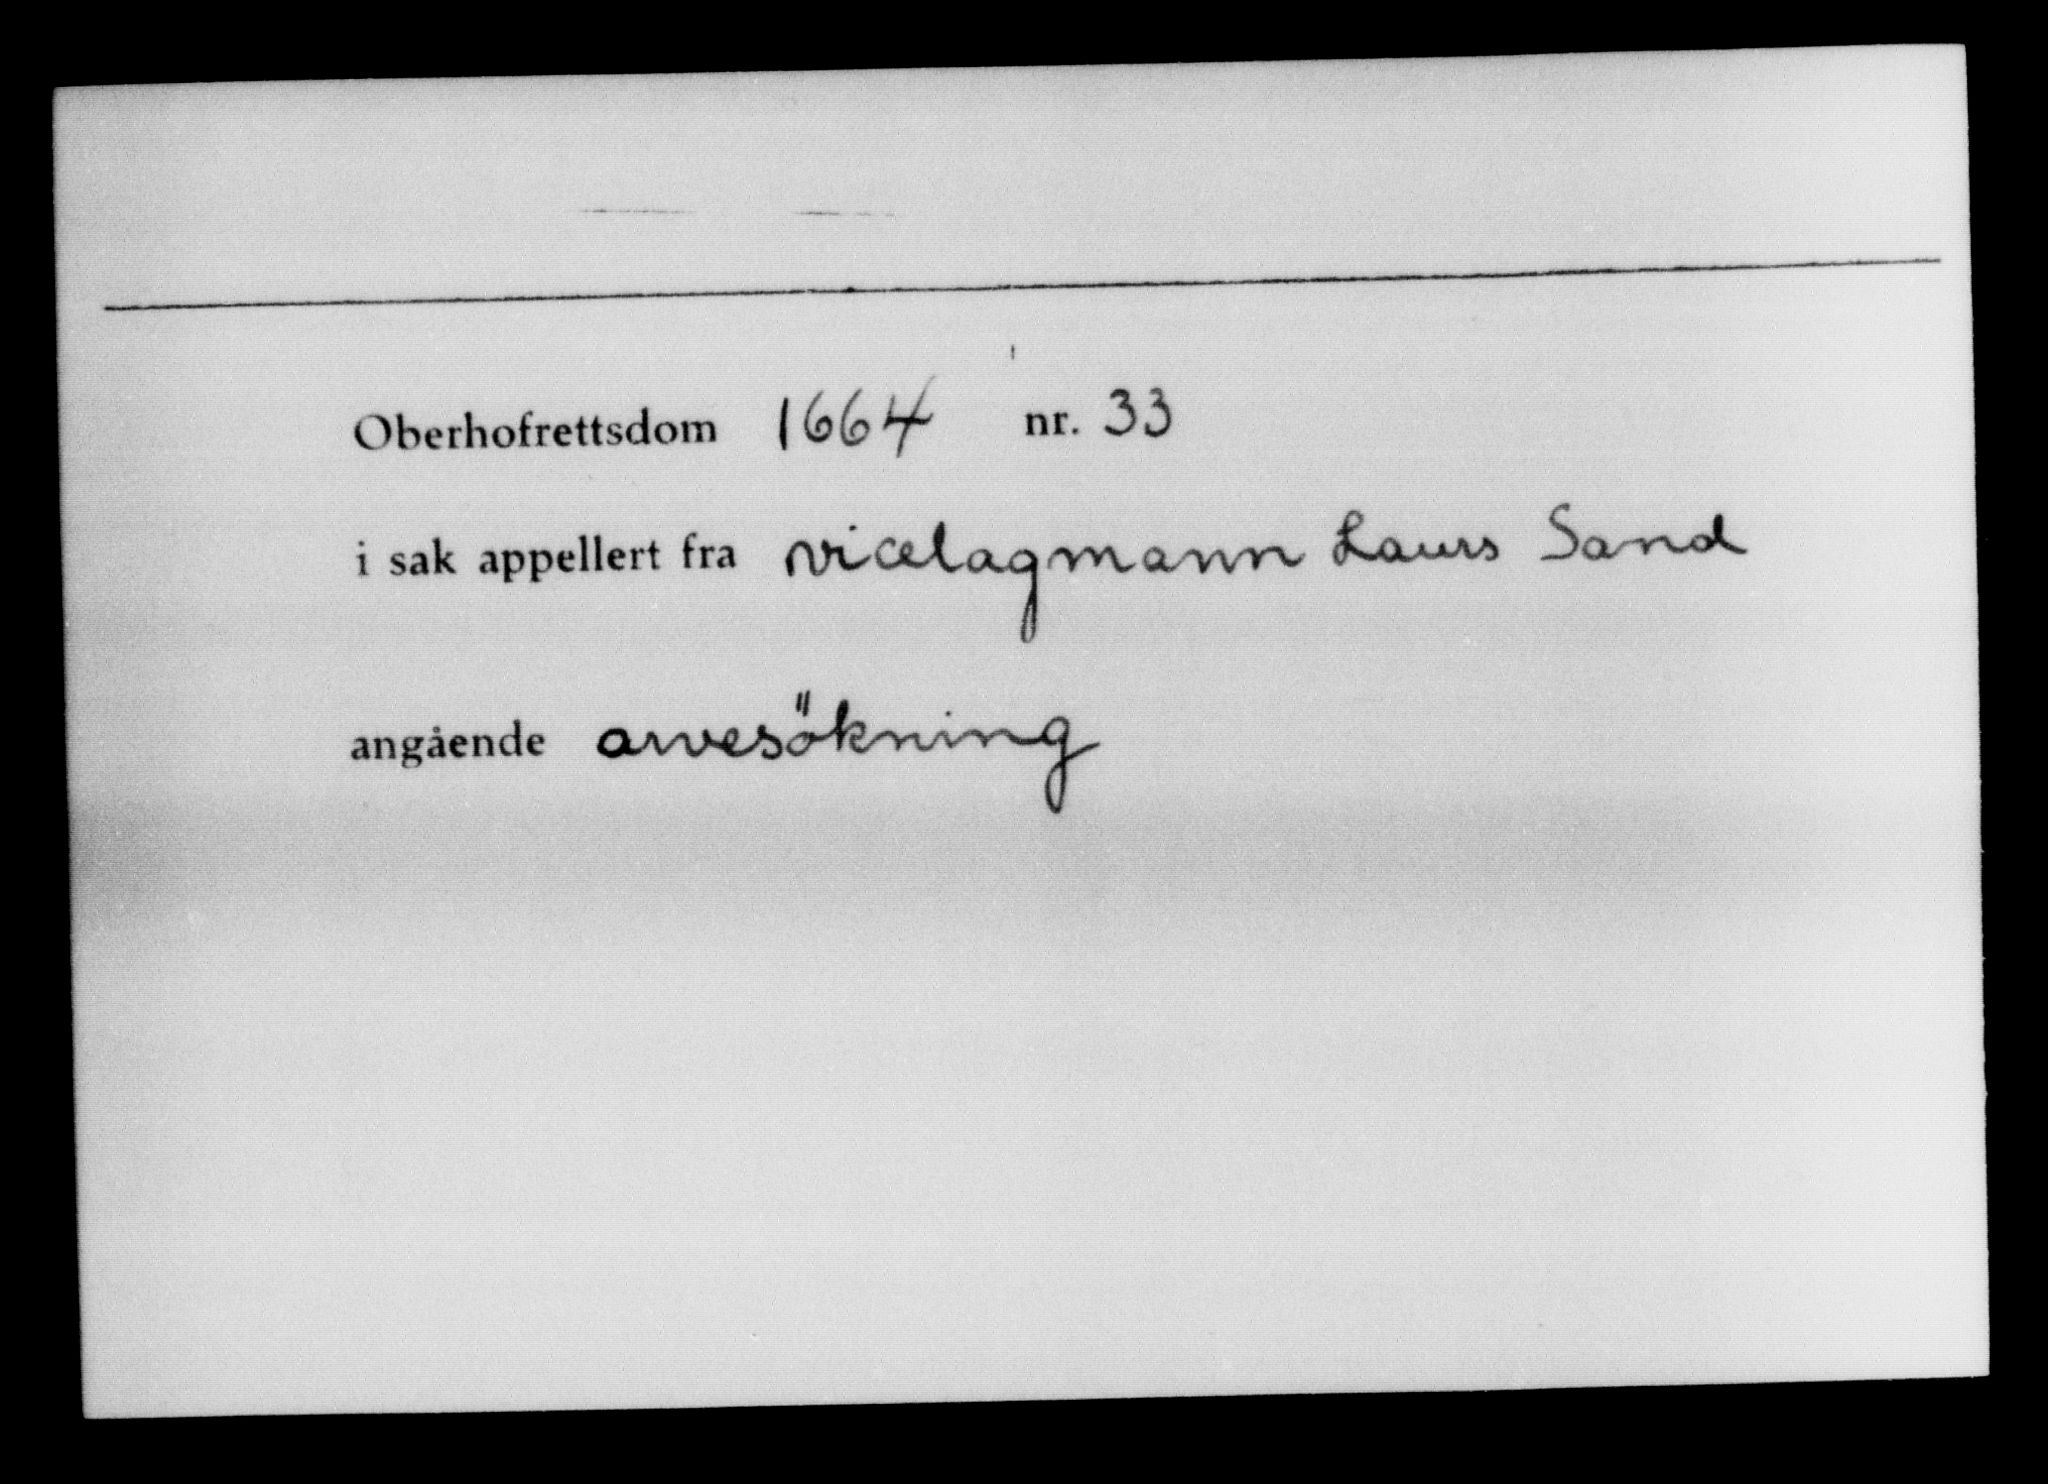 Oberhofrettsdom 1664 nr. 33
i sak appellert fra vicelagmann Laurs Sand
angående arvesökning